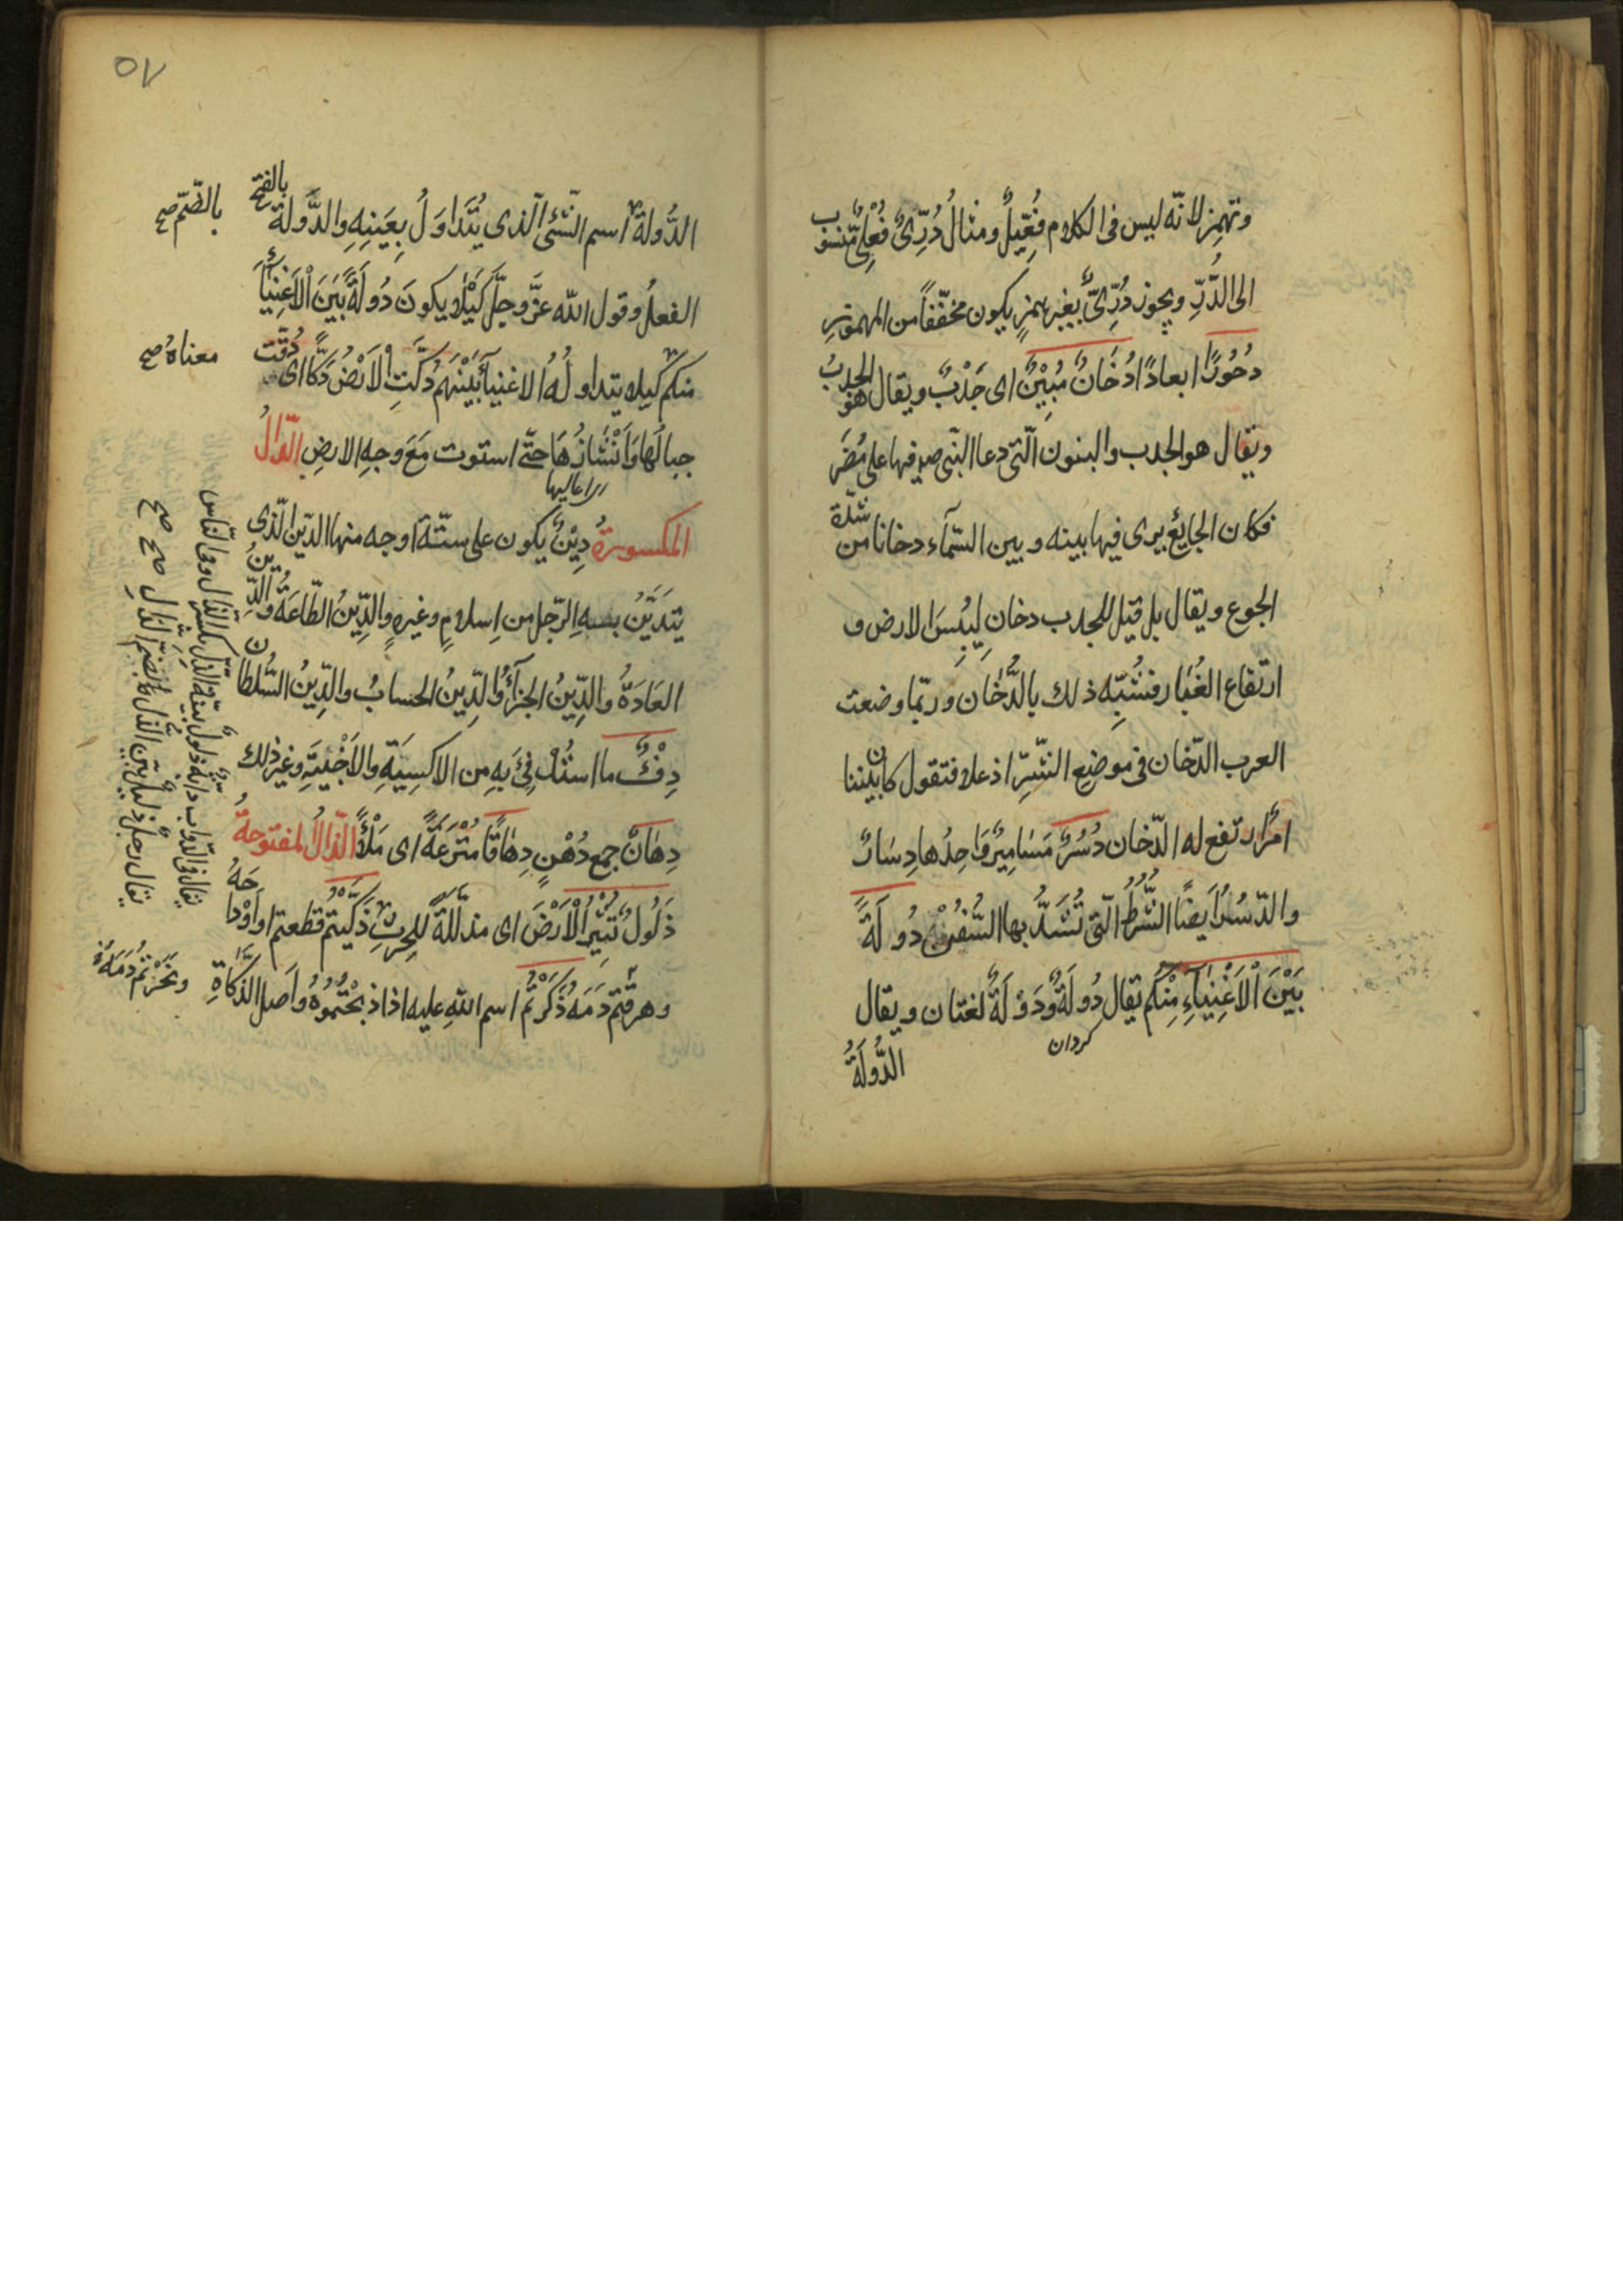 وتهمز لانّه ليس فى الكلام فُعِّيلٌ ومثالُ دُرِّىٌّ فُعْلِىٌّ منسوب
الى الدُّرِّ ويجوز دُرِّىٌّ بغير همزٍ يكون مخفّفاً من المهموز
دُحُورًا ابعادًا دُخَانٌ مُبِيْنٌ اى جَدْبٌ ويقال هو الجدبُ
ويقال هو الجدب والسنون الّتى دعا النّبى ص فيها على مُضَرَ
فكان الجايع يرى فيها بينه وبين السّمآء دخانا من شدّة
الجوع ويقال بل قيل للجدب دخان لِيُبْسِ الارض و
ارتفاع الغُبَار فشُبِّه ذلك بالدُّخَان وربّما وضعت
العرب الدّخان فى موضع الشّرِّ اذ علا فتقول كان بيننا
امرٌ ارتفع له الدّخان دُسُرٌ مَسَامِيْرٌ وَاحِدُها دِسَارٌ
والدّسُرُ ايضًا الشُّرُطُ الّتى تُشَدُّ بها السُّفُنُ دُولَةً
بَيْنَ الْاَغْنِيَآءِ مِنْكُم يقال دُولَةٌ ودَوْلَةٌ لغتان ويقال
كردان
الدُّولَةُ
٥٧
الدُّولةُ اسم الشّئى الّذى يُتَدَاوَلُ بِعَيْنِهِ والدَّولة بالفتح
بالضّمّ صح
الفعلُ وقول الله عزَّ وجلّ كَيْلا يكونَ دُولَةً بَيْنَ الْاَغْنِيَآءِ
منكم كيلا يتداولُهُ الاغنيآءُ بَيْنَهُم دُكَّتِ الْاَرْضُ دَكًّا اى دُقّت
معناهُ صح
جبالُها وَاَنْشَازُهَا حتّى استوت مَعَ وجهِ الارضِ الدّالُ
المكسورةُ دِيْنٌ يكون على ستّة اوجه منها الدّين الّذى
يتَدَيَّنُ به الرّجل من اِسلامٍ وغيرهِ والدِّينُ الطّاعَةُ والدِّينُ
العَادَةُ والدِّينُ الجزآءُ والدِّينُ الحسابُ والدِّينُ السُّلطان
دِفْءٌ ما استُدْفِئَ بهِ مِن الاكسِيَةِ والاَخْبِيَةِ وغير ذلك
دِهَانٌ جمع دُهْنٍ دِهَاقًا مُتْرَعَةً اى مَلْأً الذّالُ المفتوحةُ
ذَلُولٌ تُثِيْرُ الْاَرْضَ اى مذلّلةً للحرثِ ذَكَّيْتُمْ قطعتم اوداجَهُ
وهرقتم دَمَهُ ذَكَرْتُم اسم اللهِ عليه اذا ذبحتُمُوهُ واَصل الذّكاةِ
يقال فى الدّواب دابّة ذَلُولٌ بيّنة الذّلّ بكسر الذّال وفى النّاس
يقال رجل ذليل بيّن الذّلّ بضمّ الذّال صح صح